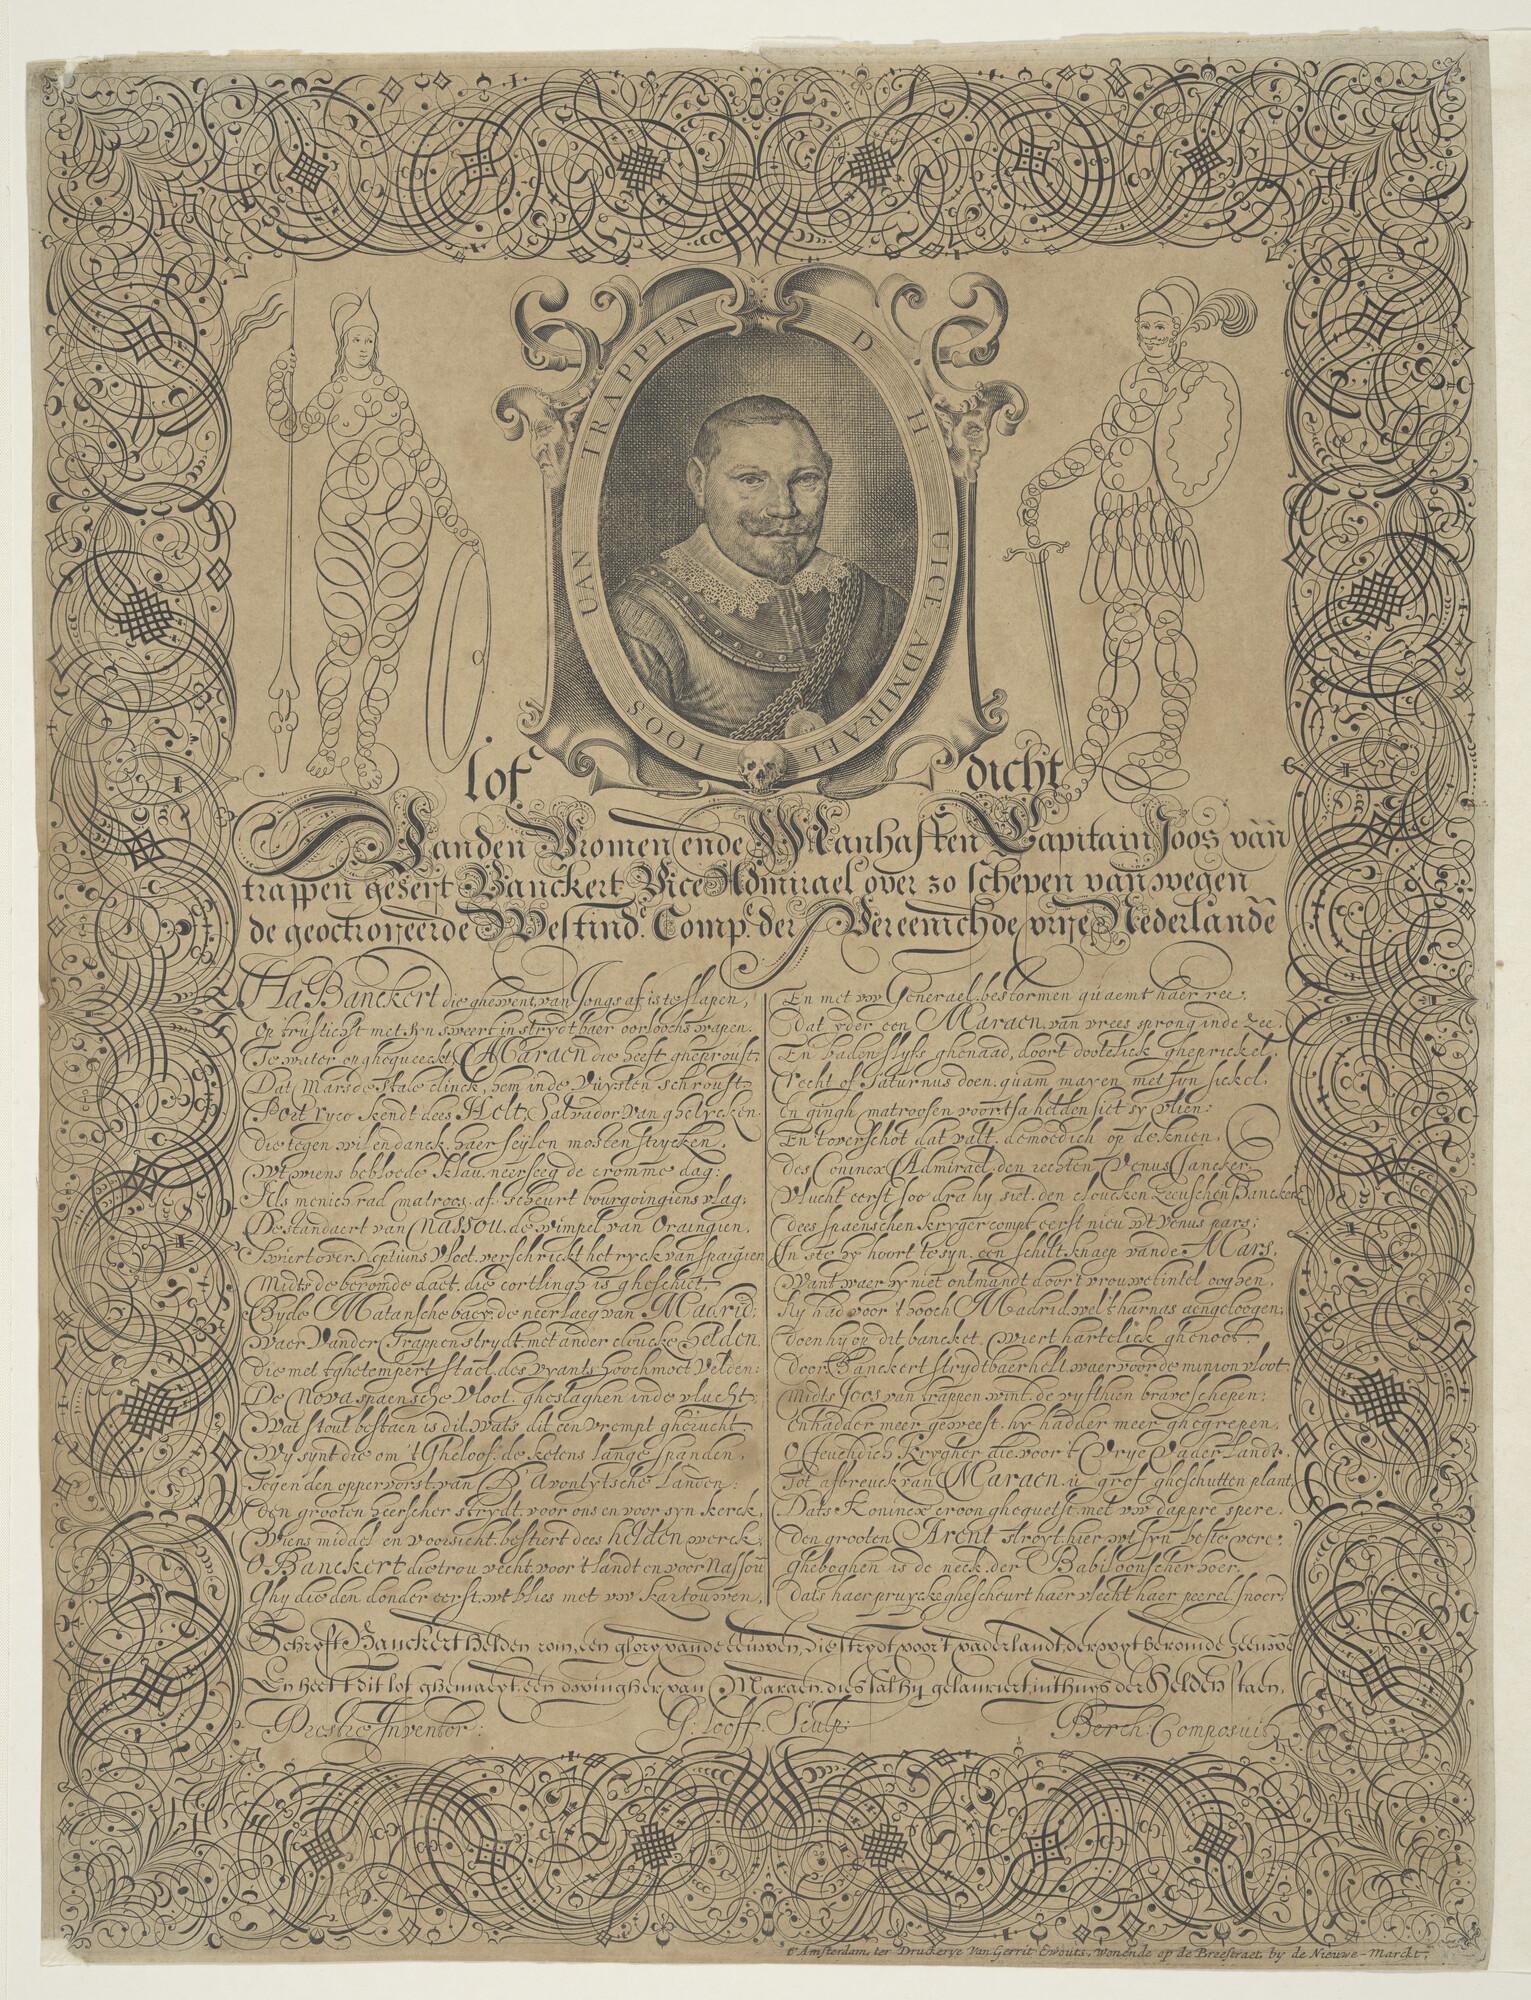 IOOS UAN TRAPPEN D H UICE ADMIRAEL
lof dicht
Vanden Vromen ende Manhaften Capitain Joos van
trappen geseyt Banckert Vice Admirael over 30 schepen van wegen
de geoctroyeerde Westind. Comp. der Vereenichde vrye Nederlande
Ha Banckert die ghewent, van Jongs af is te slapen,
Op 't ruslicht met syn sweert in strydtbaer oorloochs wapen.
Te water opghequeeckt, Maraen die heeft gheproust,
Dat Mars de Stale clinck, hem inde Vuysten schroust,
Port ryco kendt dees Helt, Salvador van ghelycken.
die tegen wil en danck, haer seylen mosten strycken,
Wt wiens bebloede klau, neerseeg de cromme dag:
Als menich rad matroos, af scheurt bourgoingiens vlag,
De standaert van Nassou, de wimpel van Oraingien,
Swiert overs Neptuins Vloet, verschrickt het ryck van spaigien
Midts de beromde daet, die cortlingh is gheschiet,
Byde Matansche baey, de neerlaeg van Madrid:
Waer Vander Trappen strydt, met ander cloucke helden
Die met tghetempert stael, des vyants hoochmoet velden:
De Nova spaensche Vloot, gheslaghen inde vlucht,
Wat stout bestaen is dit, wats dit een vrempt gherucht,
Wy synt die om 't Gheloof, de ketens lange spanden,
Tegen den oppervorst, van D'Avontytsche Landen:
den grooten heerscher strydt, voor ons en voor syn kerck,
Wiens middel en voorsicht, bestiert dees helden werck,
O Banckert die trou vecht, voor 't landt en voor Nassou
Ghy die den donder eerst, wt blies met vw kartouwen,
En met vw Generael, bestormen quaemt haer ree,
dat yder een Maraen, van vrees sprong inde Zee,
En baden slyfs ghenaed, doort dootelick gheprickel,
recht of Saturnus doen, quam mayen met syn sickel,
En gingh matroosen voort, sa helden siet sy vlien:
En t'overschot dat valt, demoedich op de knien,
des Coninex Admirael, den rechten Venus Jancker,
Vlucht eerst soo dra hy siet, den cloucken Zeeuschen Banckert
dees spaenschen kryger compt, eerst nieu wt Venus pars,
In ste hy hoort te syn, een schilt knaep vande Mars,
Want waer hy niet ontmandt, doort vrouwetintel ooghen,
Hy had voor 't hooch Madrid, wel 't harnas aengetoogen,
doen hy op dit bancket, wiert hartelick ghenoot,
door Banckert strydtbaer helt, waer voor de minion vloot
midts Joos van trappen wint, de vyfthien brave schepen,
en hadder meer geweest, hy hadder meer ghegrepen,
O Jeuchdich Krygher die, voor 't Vrye Vaderlandt,
Tot afbreuck van Maraen, u grof gheschutten plant,
Dats Koninex eroon ghequetst, met vw dappre spere.
den grooten Arent stroyt, hier wt syn beste vere:
Gheboghen is de neck, der Babiloonscher hoer,
dats haer pruycke ghescheurt, haer vlecht haer peerel snoer,
Schryft Banckert helden roin, een glory vande eeuwen, die strydt voort vaderlandt, der wyt beromde Zeeuwe
En heeft dit lof ghemaeyt, een dwingher van Maraen, dies sal hy gelauriert, int huys der helden staen,
Prestre Inventor: G: Looff. Sculp: Berch Composuit
t'Amsterdam, ter Druckerye Van Gerrit Ewouts, wonende op de Breestraet, by de Nieuwe-Marckt.